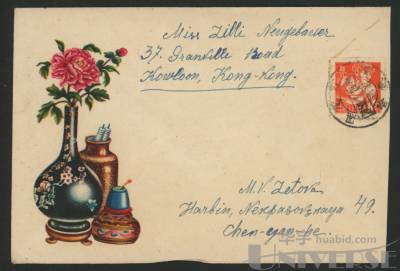 Miss Zilli Neugebauer
37. Granville Road
Kowloon, Hong-Kong.
M.V. Zetova
Harbin, Nekrasovskaya 49.
华宇 huabid.com
UNIVERSE